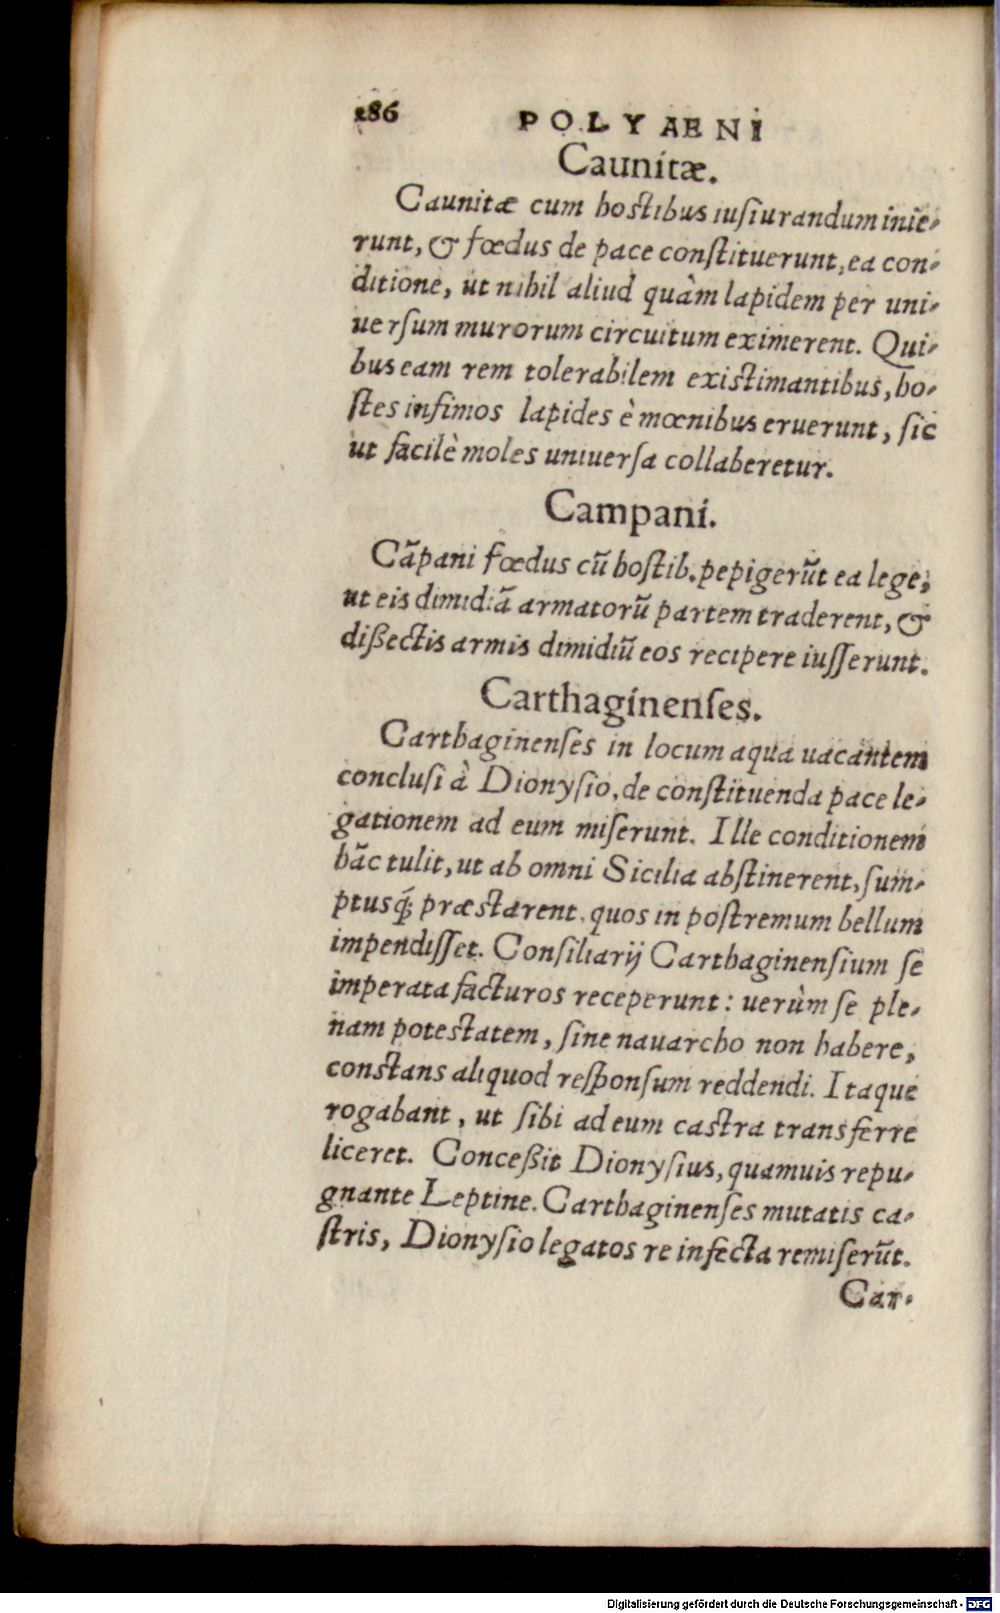 286
POLYAENI
Caunitæ.
Caunitæ cum hostibus iusiurandum inie-
runt, & fœdus de pace constituerunt, ea con-
ditione, ut nihil aliud quàm lapidem per uni-
uersum murorum circuitum eximerent. Qui-
bus eam rem tolerabilem existimantibus, ho-
stes infimos lapides è mœnibus eruerunt, sic
ut facilè moles uniuersa collaberetur.
Campani.
Cãpani fœdus cũ hostib. pepigerũt ea lege,
ut eis dimidiã armatorũ partem traderent, &
dißectis armis dimidiũ eos recipere iusserunt.
Carthaginenses.
Carthaginenses in locum aqua uacantem
conclusi à Dionysio, de constituenda pace le-
gationem ad eum miserunt. Ille conditionem
hãc tulit, ut ab omni Sicilia abstinerent, sum-
ptusq́; præstarent, quos in postremum bellum
impendisset. Consiliarij Carthaginensium se
imperata facturos receperunt: uerùm se ple-
nam potestatem, sine nauarcho non habere,
constans aliquod responsum reddendi. Itaque
rogabant, ut sibi ad eum castra transferre
liceret. Conceßit Dionysius, quamuis repu-
gnante Leptine. Carthaginenses mutatis ca-
stris, Dionysio legatos re infecta remiserũt.
Car-
Digitalisierung gefördert durch die Deutsche Forschungsgemeinschaft - DFG